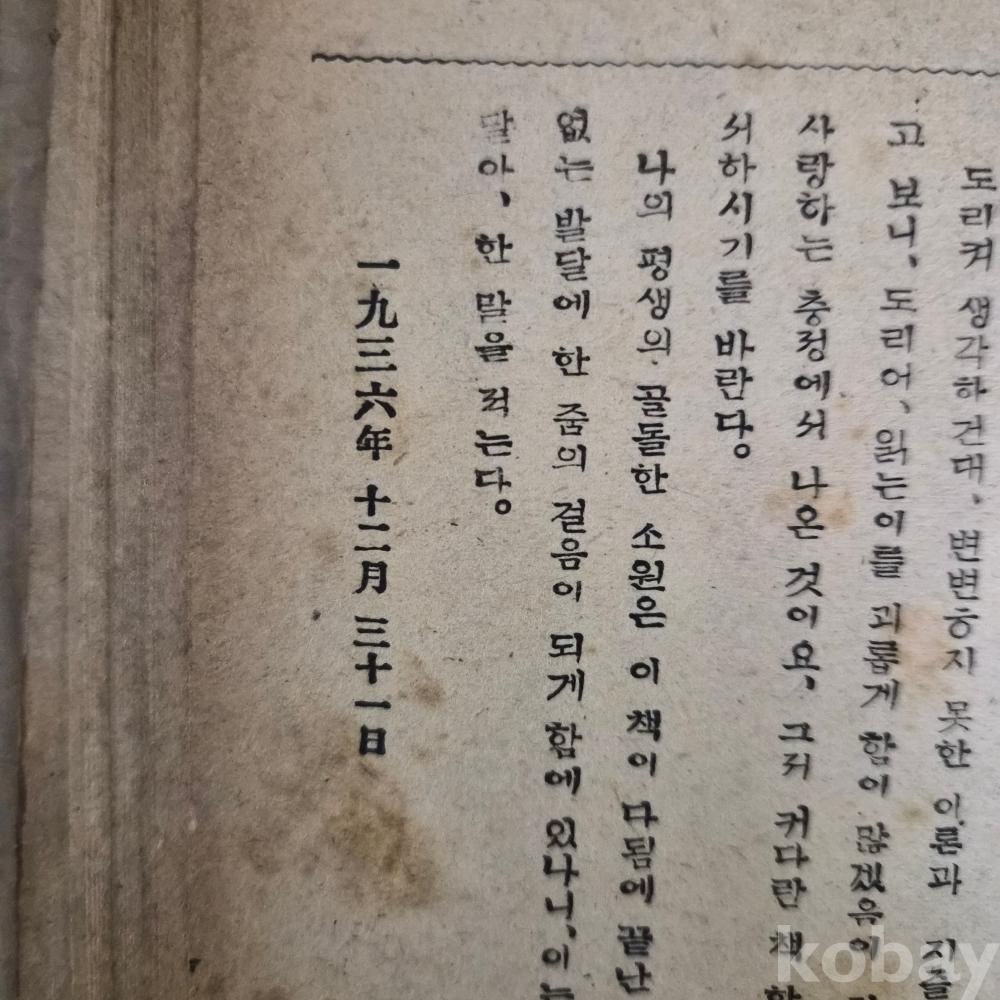 도리켜 생각하건대, 변변ᄒᆞ지 못한 이론과
고 보니, 도리어, 읽는이를 괴롭게 함이 많겠음이
사랑하는 충정에서 나온 것이요, 그저 커다란 책
서하시기를 바란다。
나의 평생의 골돌한 소원은 이 책이 다됨에 끝난
없는 발달에 한 줌의 걸음이 되게 함에 있나니, 이는
달아, 한 말을 적는다。
一九三六年 十二月 三十一日
kobay